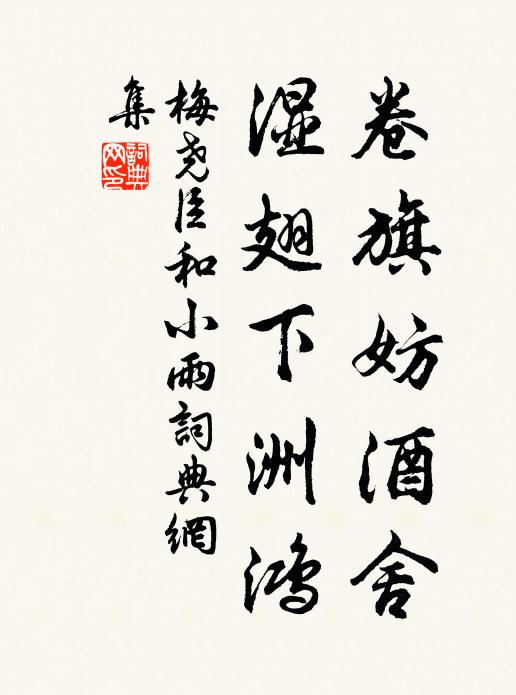 卷旗妨酒舍
湿翅下洲鸿
梅尧臣和小雨詞典網
集
詞典
网印